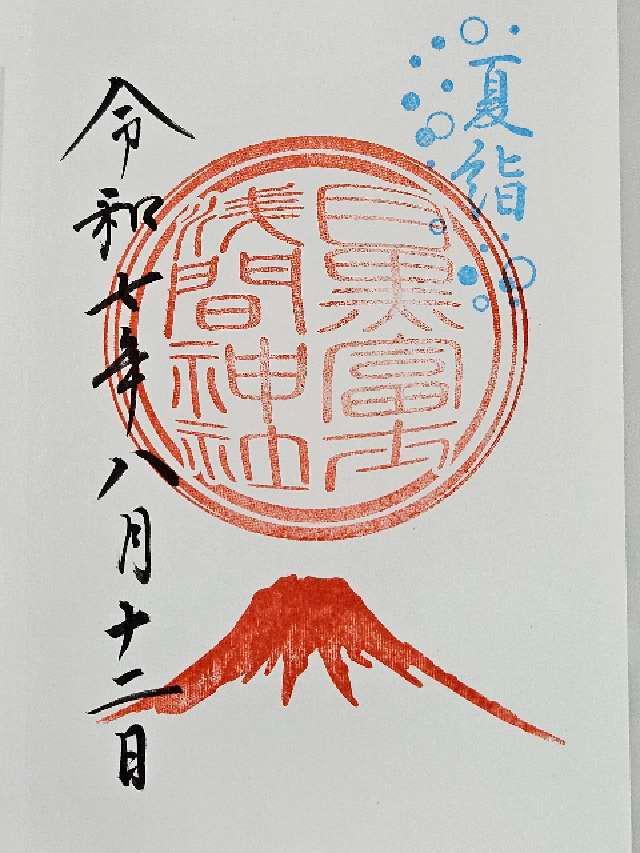 夏詣
目黒富士
浅間神社
令和七年八月十二日